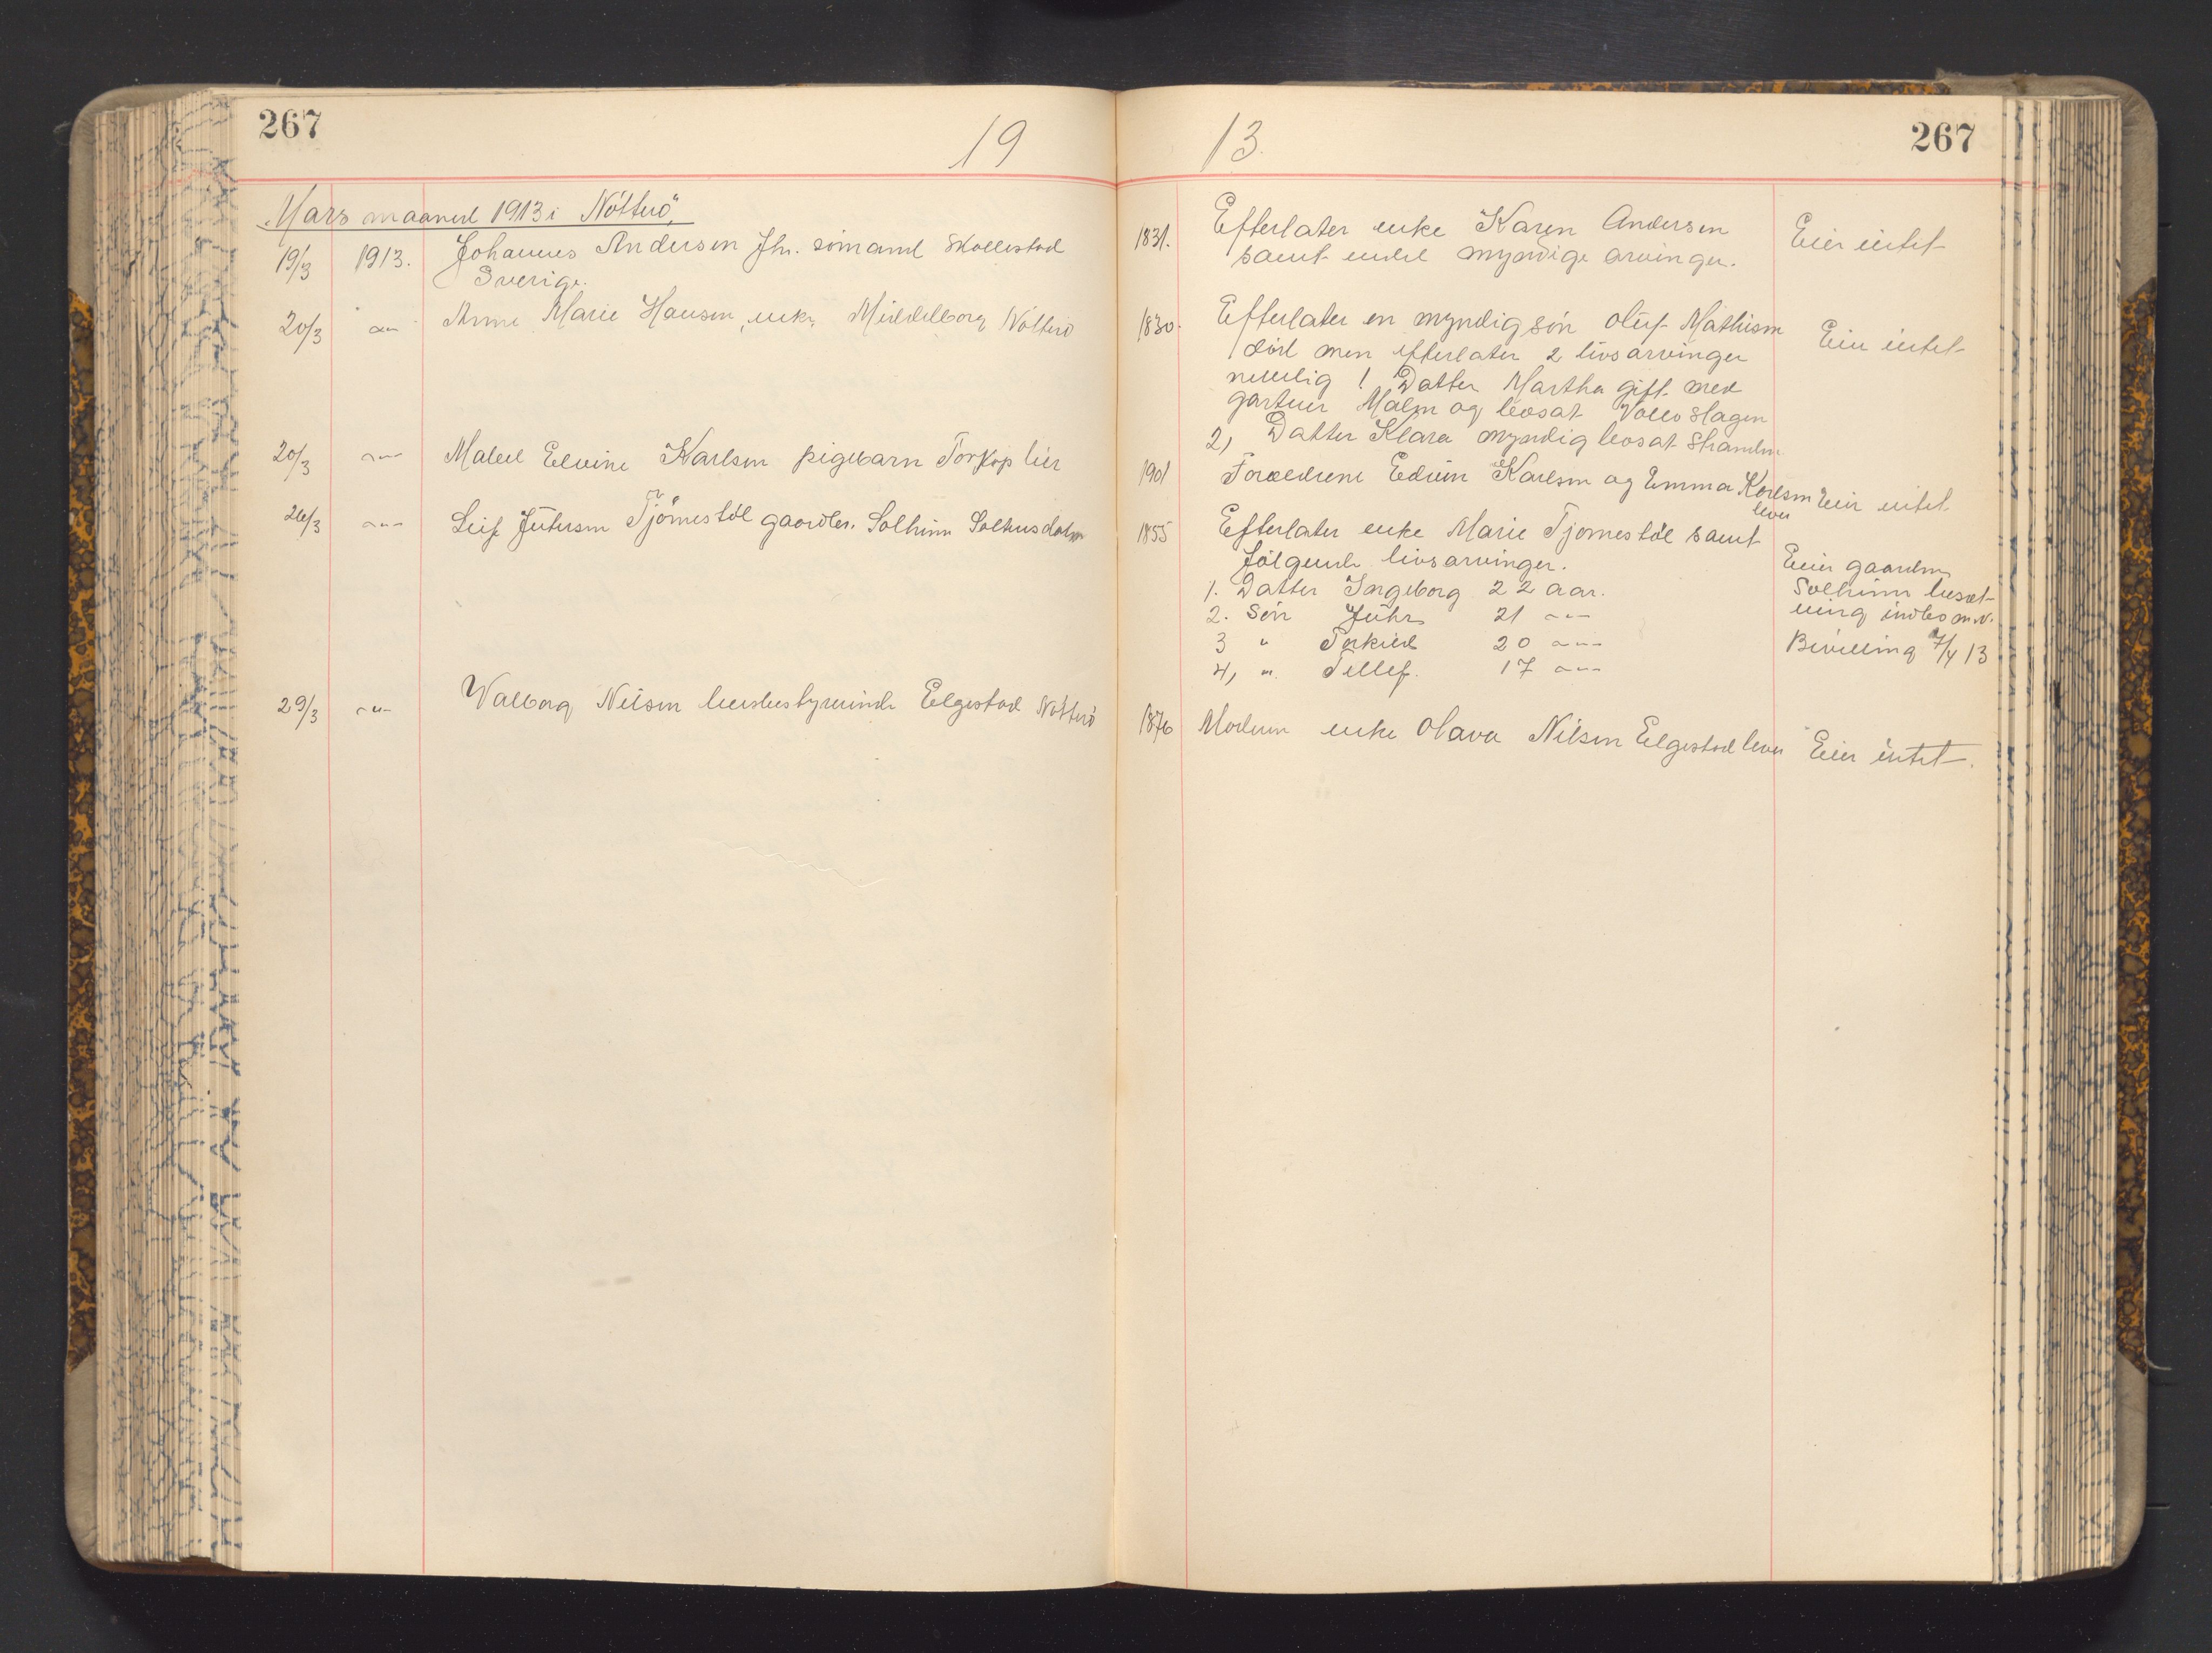 267
19
Mars maaned 1913 i Nötterö
19/3 1913. Johannes Andersen Fhr. sömand Skollestad
Sverige.
20/3 Anne Marie Hansen, enke, Middelborg Nötterö
20/3 Mabel Elvine Karlsen pigebarn Torkop Lier
26/3 Leif Juhlsen Tjömestöl gaardbr. Solheim
29/3 Walborg Nilsen husbestyrerinde Elgestad Nötterö
13.
267
1831. Efterlater enke Karen Andersen Eier intet
samt endel myndige arvinger.
1830. Efterlater en myndig sön Oluf Mathisen
död men efterlater 2 livsarvinger Eier intet
nemlig 1 Datter Martha gift med
gartner Malm og bosat Slagen
2, Datter Klara myndig bosat Stranden
1901 Foræeldrene Edvin Karlsen og Emma Karlsen Eier intet
lever
1855 Efterlater enke Marie Tjomestöl samt
fölgende livsarvinger. Eier gaarden
1. Datter Ingeborg 22 aar. Solheim besæt-
2. Sön Juhr 21 ning indbo m.v.
3 " Torkild 20 Bevilling 7/4 13
4, " Tellef. 17
1876 Moderen enke Olava Nilsen Elgestad lever Eier intet.